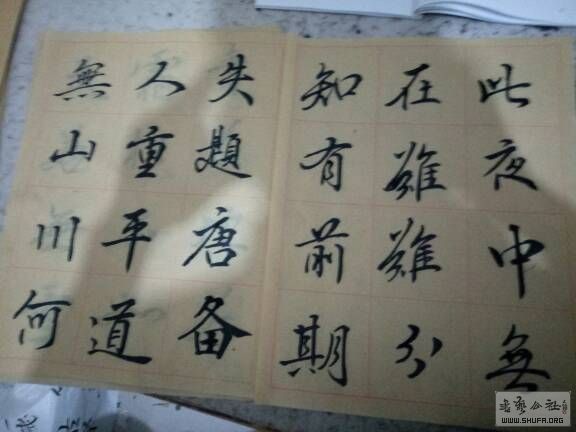 無山川何
人重平道
失題唐备
知有前期
在難難分
此夜中無
書藝公社
WWW.SHUFA.ORG